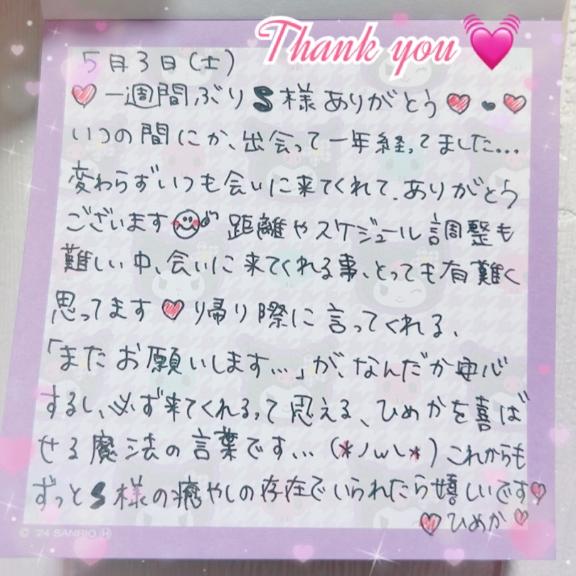 Thank you
5月3日(土)
♡一週間ぶりS様ありがとう♡・♡
いつの間にか、出会って一年経ってました...
変わらずいつも会いに来てくれて、ありがとう
ございます 距離やスケジュール調整も
難しい中、会いに来てくれる事、とっても有難く
思ってます♡帰り際に言ってくれる、
「またお願いします...」が、なんだか安心
するし、必ず来てくれるって思える、ひめかを喜ば
せる魔法の言葉です...(*ノωヽ*)これからも
ずっとS様の癒やしの存在でいられたら嬉しいです♡
♡ひめか♡
© '24 SANRIO Ⓗ